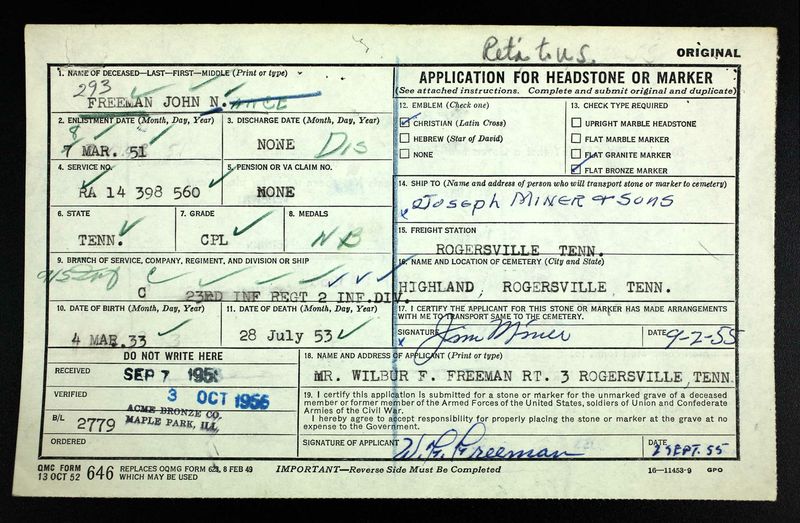 Ret'n to U.S.
ORIGINAL
1. NAME OF DECEASED—LAST—FIRST—MIDDLE (Print or type)
293
FREEMAN JOHN N.
2. ENLISTMENT DATE (Month, Day, Year)
8
7 MAR. 51
3. DISCHARGE DATE (Month, Day, Year)
NONE Dis
4. SERVICE NO.
RA 14 398 560
5. PENSION OR VA CLAIM NO.
NONE
6. STATE
TENN.
7. GRADE
CPL
8. MEDALS
9. BRANCH OF SERVICE, COMPANY, REGIMENT, AND DIVISION OR SHIP
C 23RD INF REGT 2 INF.DIV.
10. DATE OF BIRTH (Month, Day, Year)
4 MAR.33
11. DATE OF DEATH (Month, Day, Year)
28 July 53
DO NOT WRITE HERE
RECEIVED
SEP 7
VERIFIED
3 OCT 1956
B/L 2779
ACME BRONZE CO.
MAPLE PARK, ILL
ORDERED
APPLICATION FOR HEADSTONE OR MARKER
(See attached instructions. Complete and submit original and duplicate)
12. EMBLEM (Check one)
CHRISTIAN (Latin Cross)
HEBREW (Star of David)
NONE
13. CHECK TYPE REQUIRED
UPRIGHT MARBLE HEADSTONE
FLAT MARBLE MARKER
FLAT GRANITE MARKER
FLAT BRONZE MARKER
14. SHIP TO (Name and address of person who will transport stone or marker to cemetery)
x Joseph MINER & SONS
15. FREIGHT STATION
ROGERSVILLE TENN.
16. NAME AND LOCATION OF CEMETERY (City and State)
HIGHLAND, ROGERSVILLE, TENN.
17. I CERTIFY THE APPLICANT FOR THIS STONE OR MARKER HAS MADE ARRANGEMENTS
WITH ME TO TRANSPORT SAME TO THE CEMETERY.
SIGNATURE
x Jim Miner
DATE 9-2-55
18. NAME AND ADDRESS OF APPLICANT (Print or type)
MR. WILBUR F. FREEMAN RT. 3 ROGERSVILLE, TENN.
19. I certify this application is submitted for a stone or marker for the unmarked grave of a deceased
member or former member of the Armed Forces of the United States, soldiers of Union and Confederate
Armies of the Civil War.
I hereby agree to accept responsibility for properly placing the stone or marker at the grave at no
expense to the Government.
SIGNATURE OF APPLICANT W. F. Freeman
DATE
2 SEPT. 55
QMC FORM
13 OCT 52 646 REPLACES OQMG FORM 623, 8 FEB 49
WHICH MAY BE USED
IMPORTANT—Reverse Side Must be Completed
16—11453-9 GPO